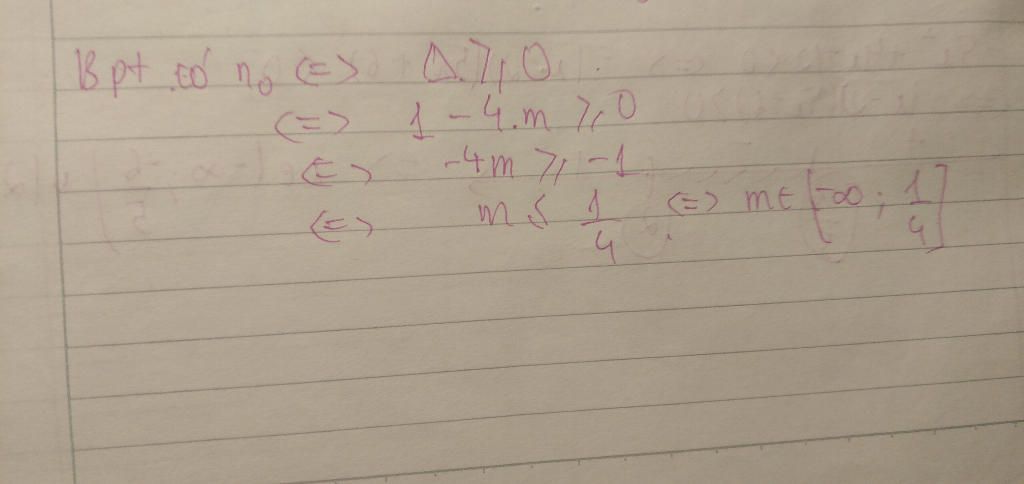 Bpt có n₀ <=> Δ ⩾ 0
<=> 1 - 4.m ⩾ 0
<=> -4m ⩾ -1
<=> m ⩽ 1/4 <=> m ∈ [-∞ ; 1/4]